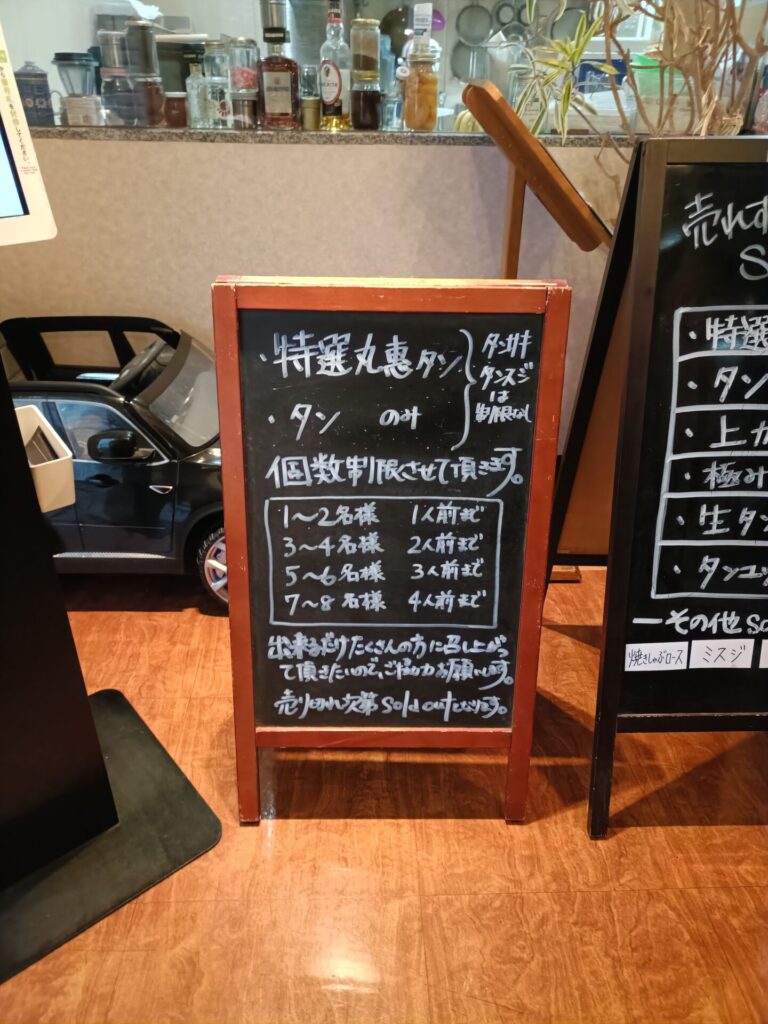 ・特選丸恵タン
・タン のみ
タンサキ
タンスジ
は
制限なし
個数制限させて頂きます。
1〜2名様 1人前まで
3〜4名様 2人前まで
5〜6名様 3人前まで
7〜8名様 4人前まで
出来るだけたくさんの方に召し上がっ
て頂きたいので、ご協力お願いします。
売り切れ次第Sold outとなります。
売れす
S
・特選
・タン
・上カ
・極み
・生タン
・タンユッ
ーその他 so
焼きしゃぶロース
ミスジ